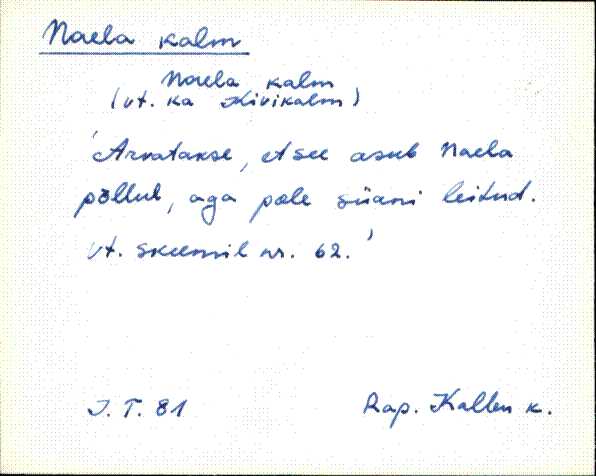 Naela kalm
Naela kalm
(vt. ka Kivikalm)
'Arvatakse, et see asub Naela
põllul, aga pole siiani leitud.
vt. skeemil nr. 62.'
I. T. 81
Rap. Kallen k.